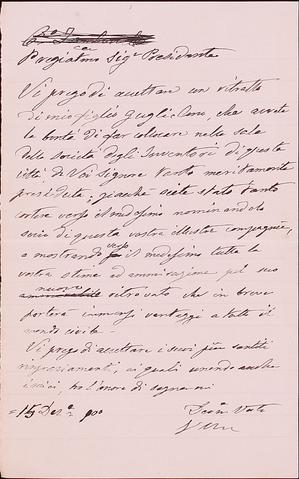 Pregiatmo Sigr Presidente
Vi prego di accettare un ritratto
di mio figlio Guglielmo, che avrete
la bontà di far collocare nella sala
della società degli Inventori di questa
città da Voi Signore tanto meritamente
presieduta, giacchè siete stato tanto
cortese verso il medesimo nominandolo
socio di questa vostra illustre compagnia,
e mostrando verso il medesimo tutta la
vostra stima ed ammirazione pel suo
nuovo ritrovato che in breve
porterà immensi vantaggi a tutto il
mondo civile.
Vi prego di accettare i suoi più sentiti
ringraziamenti, ai quali unendo anche
i miei, ho l'onore di segnarmi
= 15